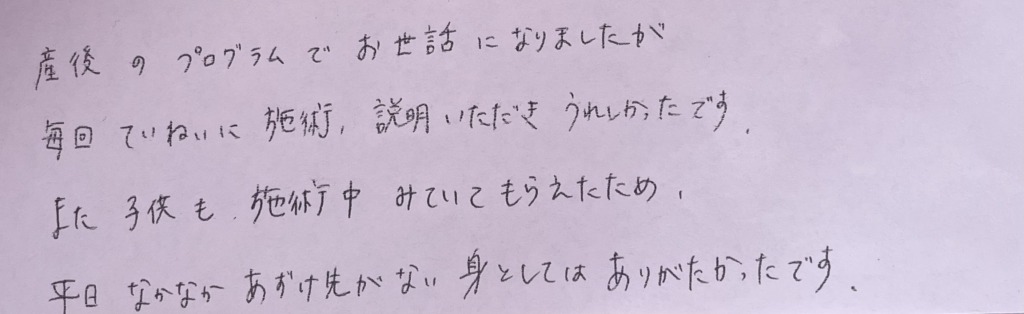 産後のプログラムでお世話になりましたが
毎回ていねいに施術、説明いただきうれしかったです.
また子供も施術中みていてもらえたため、
平日なかなかあずけ先がない身としてはありがたかったです.